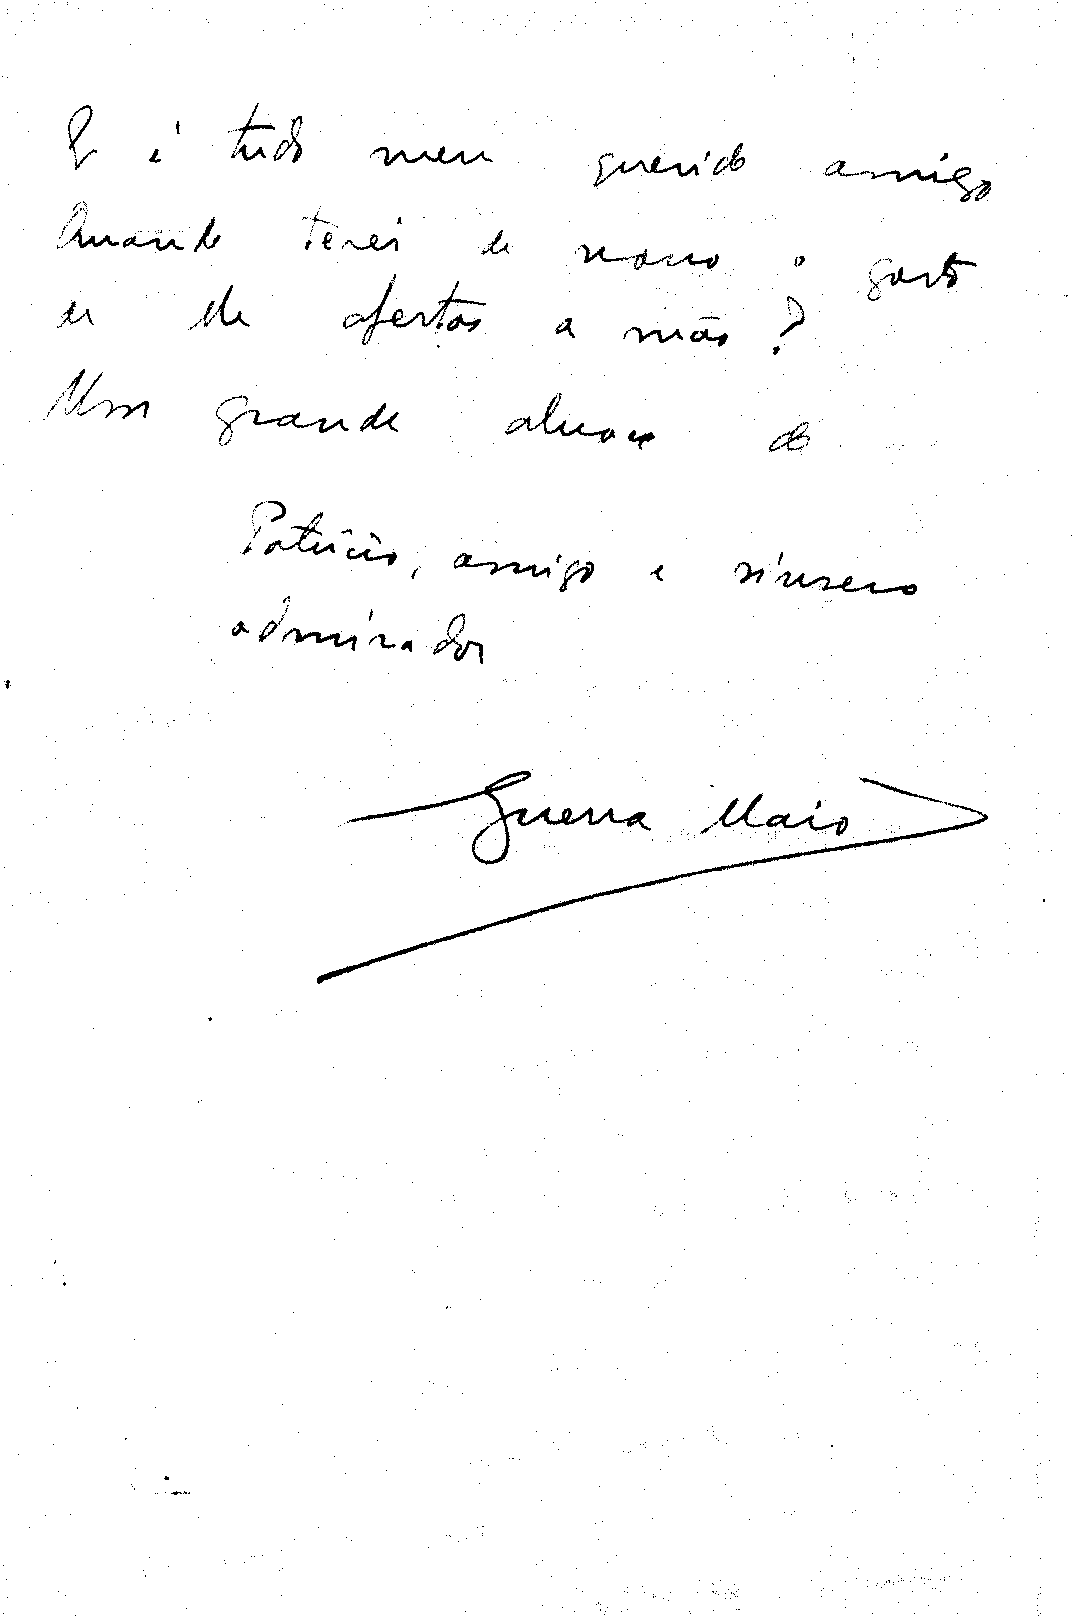 E é tudo meu querido amigo
Quando terei de novo o gosto
eu de apertar a mão?
Um grande abraço do
Patrício, amigo e sincero
admirador
Guerra Maio